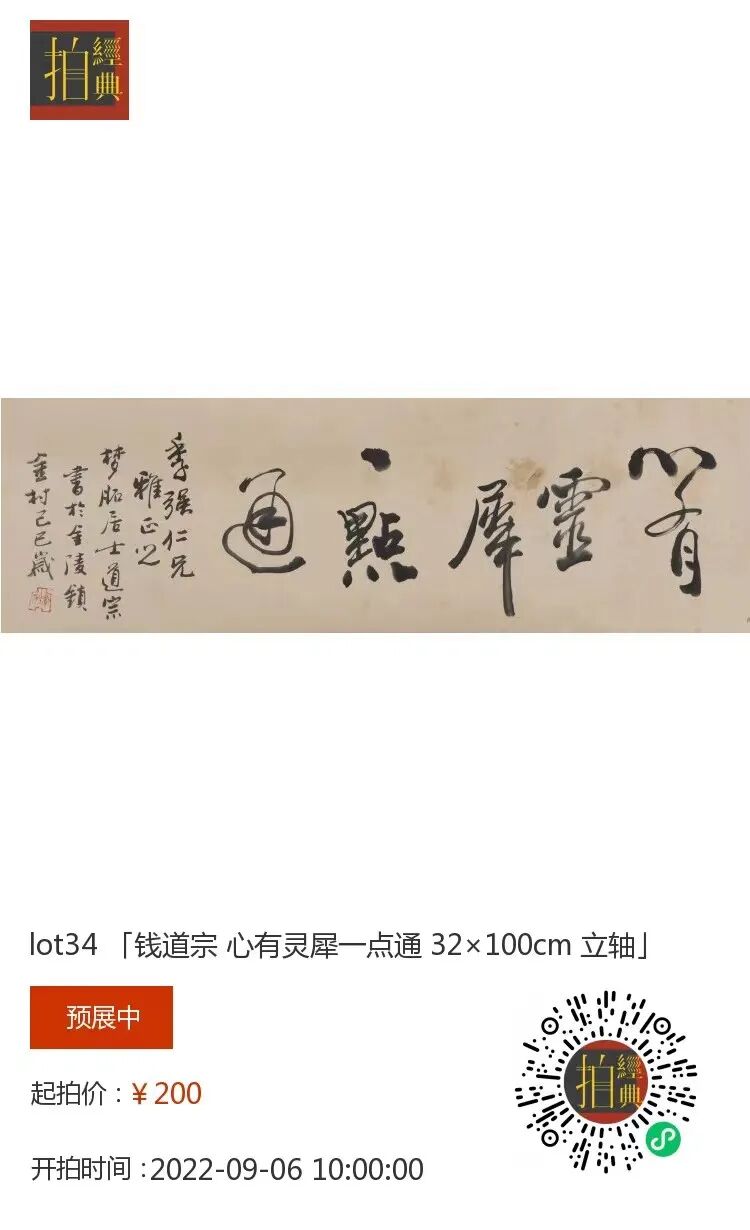 拍經典
心有
靈犀
一點
通
季强仁兄
雅正之
梦昭居士道宗
書於金陵鎖
金村己巳歲
lot34 「钱道宗 心有灵犀一点通 32×100cm 立轴」
预展中
起拍价：¥200
拍經典
开拍时间：2022-09-06 10:00:00